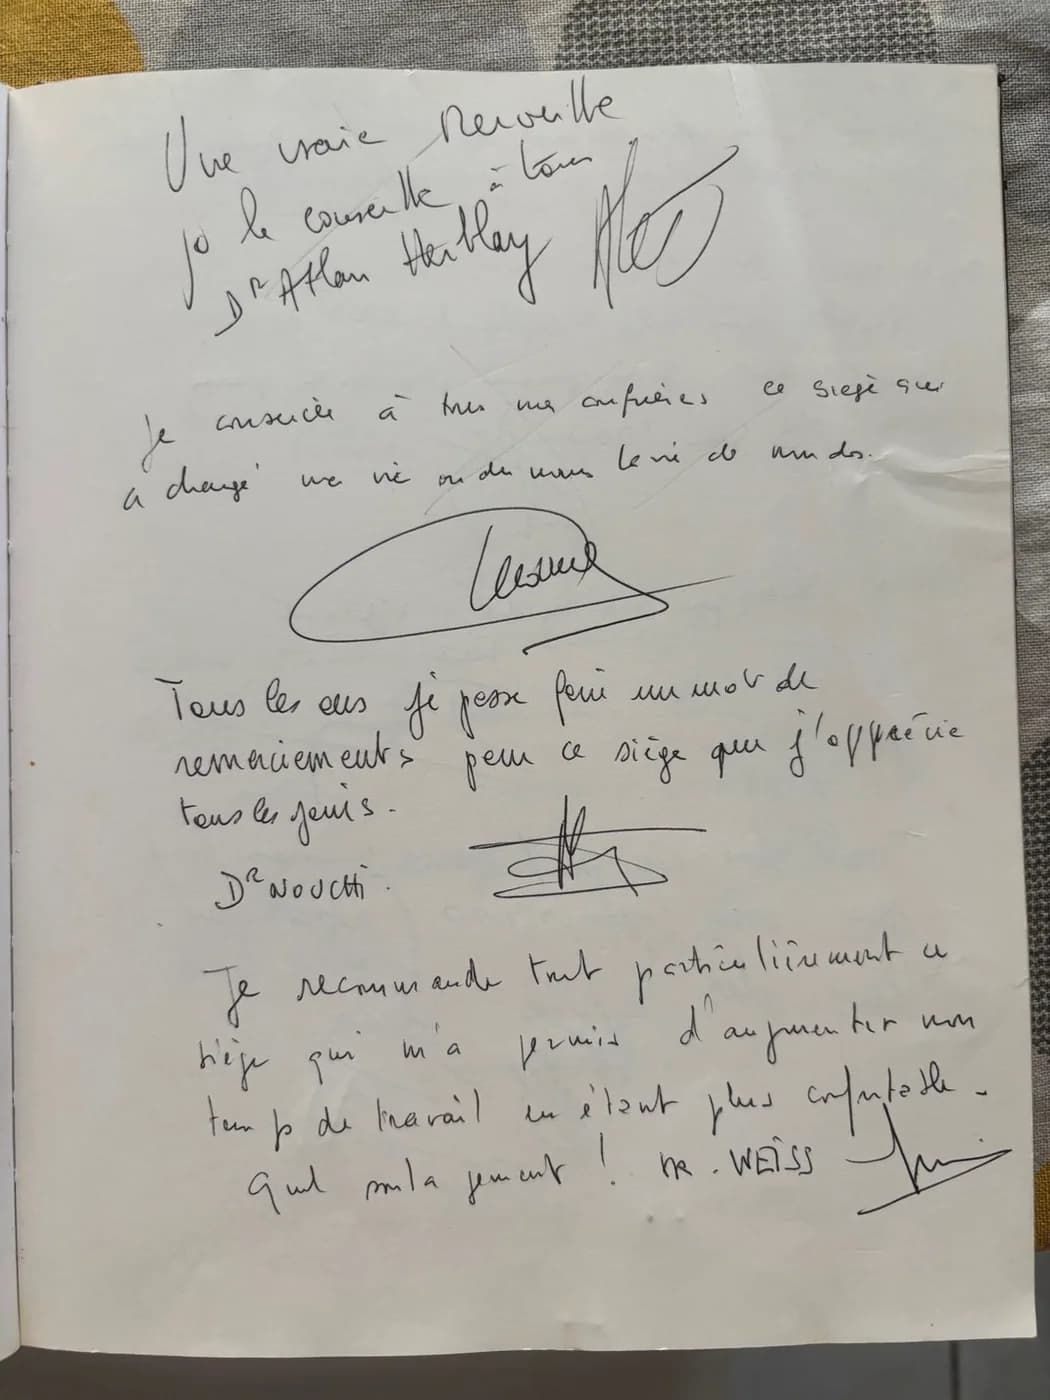 Une vraie Merveille
je le conseille à tous
Dr Atlan Herblay
Je conseille à tous mes confrères ce siège qui
a changé ma vie ou du moins la vie de mon dos.
Tous les ans je passe faire un mot de
remerciements pour ce siège que j'apprécie
tous les jours.
Dr NOUCHI.
Je recommande tout particulièrement ce
siège qui m'a permis d'augmenter mon
temps de travail en étant plus confortable.
Quel soulagement ! DR. WEISS